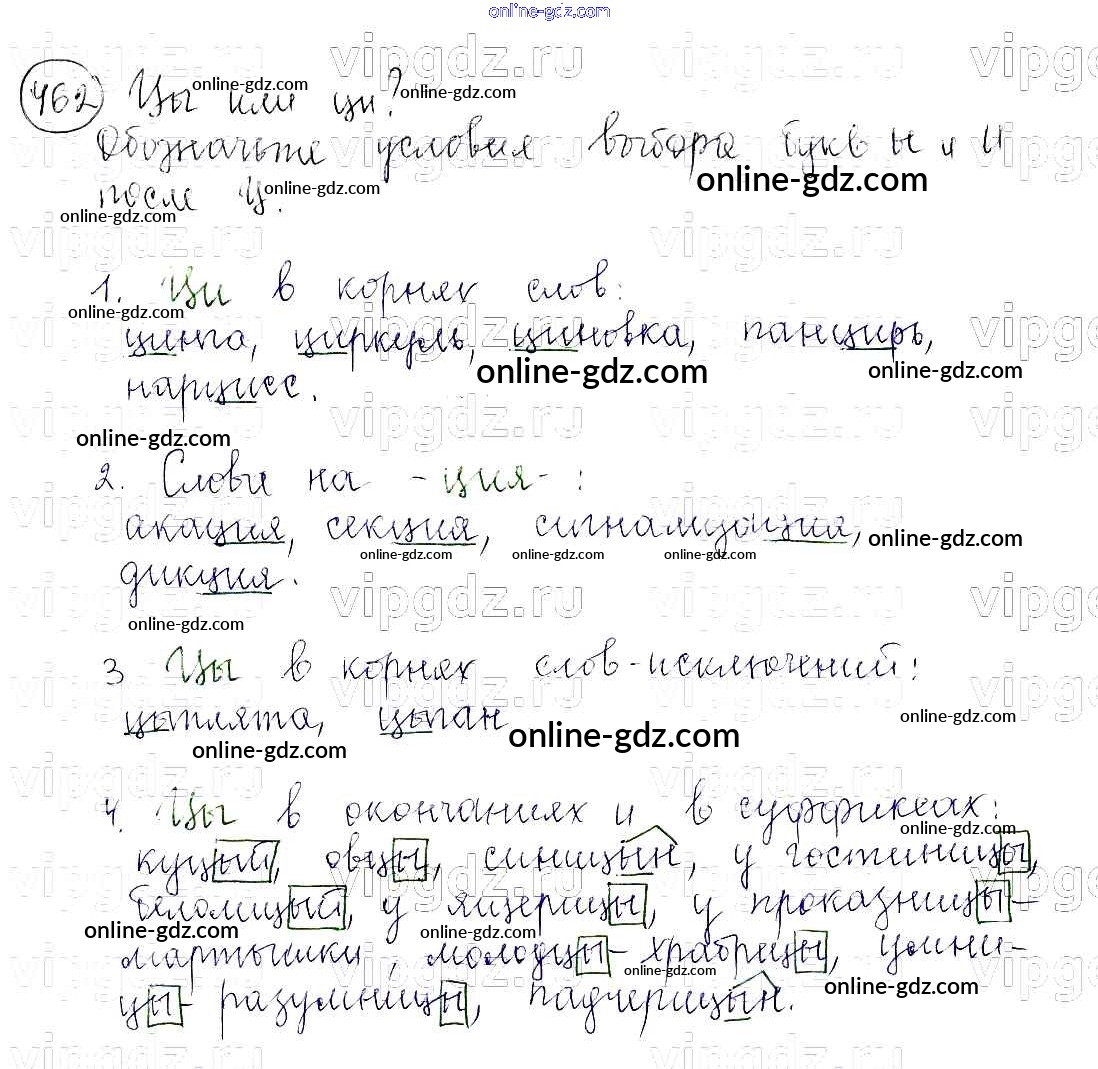 online-gdz.com
462 Цы или ци?
Обозначьте условия выбора букв ы и и
после ц.
1. Ци в корнях слов:
цинга, циркуль, циновка, панцирь,
нарцисс.
2. Слова на -ция- :
акация, секция, сигнализация,
дикция.
3 Цы в корнях слов-исключений:
цыплята, цыган
4. Цы в окончаниях и в суффиксах:
куцый, овцы, синицын, у гостиницы,
белолицый, у ящерицы, у проказницы-
мартышки, молодцы-храбрецы, умни-
цы-разумницы, падчерицын.